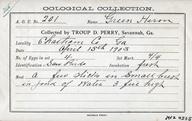 OOLOGICAL COLLECTION.
A. O. U. No. 201 Name, Green Heron
Collected by TROUP D. PERRY, Savannah, Ga.
Locality Chatham Co Ga
Date April 15 1903 Set Mark 4/4
No. of Eggs in set 4 Incubation fresh
Identification Saw birds
Nest a few sticks in small bush
in pond of water 3 feet high